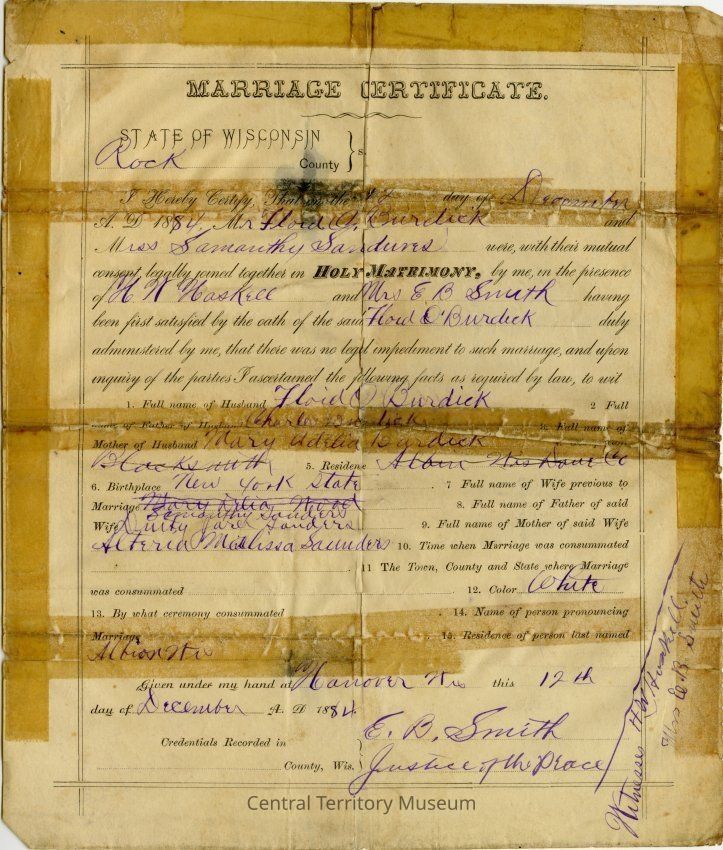 MARRIAGE CERTIFICATE.
STATE OF WISCONSIN
Rock County } s.
I Hereby Certify, That on the 12 day of December
A. D. 1884, Mr Floid O. Burdick and
Miss Samanthy Sanduers were, with their mutual
consent, legally joined together in HOLY MATRIMONY, by me, in the presence
of H W Haskell and Mrs E B Smith having
been first satisfied by the oath of the said Floid O Burdick duly
administered by me, that there was no legal impediment to such marriage, and upon
enquiry of the parties I ascertained the following facts as required by law, to wit
1. Full name of Husband Floid O Burdick 2 Full
name of Father of Husband Charles Burdick 3. Full name of
Mother of Husband Mary Adelia Burdick
Blacksmith 5. Residence Albion Wis Dane Co
6. Birthplace New York State 7 Full name of Wife previous to
Marriage Mary Delia Wood 8. Full name of Father of said
Samanthy Sanders
Wife Sanders 9. Full name of Mother of said Wife
Alteria Malissa Saunders 10. Time when Marriage was consummated
11 The Town, County and State where Marriage
was consummated 12. Color White
13. By what ceremony consummated 14. Name of person pronouncing
Marriage 15. Residence of person last named
Albion Wis
Given under my hand at Hanover Wis this 12th
day of December A. D 1884.
E. B. Smith
Credentials Recorded in
County, Wis. Justice of the Peace
Witnesses H W Haskell
Mrs E B Smith
Central Territory Museum